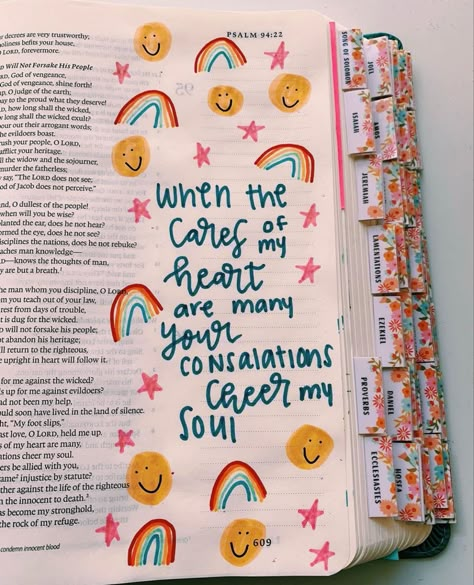 r decrees are very trustworthy;
holiness befits your house,
O LORD, forevermore.
Will Not Forsake His People
LORD, God of vengeance,
God of vengeance, shine forth!
up, O judge of the earth;
pay to the proud what they deserve!
D, how long shall the wicked,
w long shall the wicked exult?
pour out their arrogant words;
the evildoers boast.
rush your people, O LORD,
afflict your heritage.
ll the widow and the sojourner,
murder the fatherless;
y say, "The LORD does not see;
od of Jacob does not perceive."
nd, O dullest of the people!
when will you be wise?
lanted the ear, does he not hear?
ormed the eye, does he not see?
isciplines the nations, does he not rebuke?
aches man knowledge—
D—knows the thoughts of man,
y are but a breath.¹
the man whom you discipline, O LORD,
om you teach out of your law,
rest from days of trouble,
it is dug for the wicked.
will not forsake his people;
ot abandon his heritage;
ll return to the righteous,
e upright in heart will follow it.
for me against the wicked?
up for me against evildoers?
ad not been my help,
ould soon have lived in the land of silence.
ht, "My foot slips,"
ast love, O LORD, held me up.
s of my heart are many,
ations cheer my soul.
ers be allied with you,
ame² injustice by statute?
ther against the life of the righteous
n the innocent to death.³
as become my stronghold,
the rock of my refuge.
condemn innocent blood
PSALM 94:22
when the
cares of
my
heart
are many
your
consalations
cheer my
soul
609
SONG OF SOLOMON
ISAIAH
JEREMIAH
LAMENTATIONS
EZEKIEL
PROVERBS
ECCLESIASTES
JOEL
AMOS
DANIEL
HOSEA